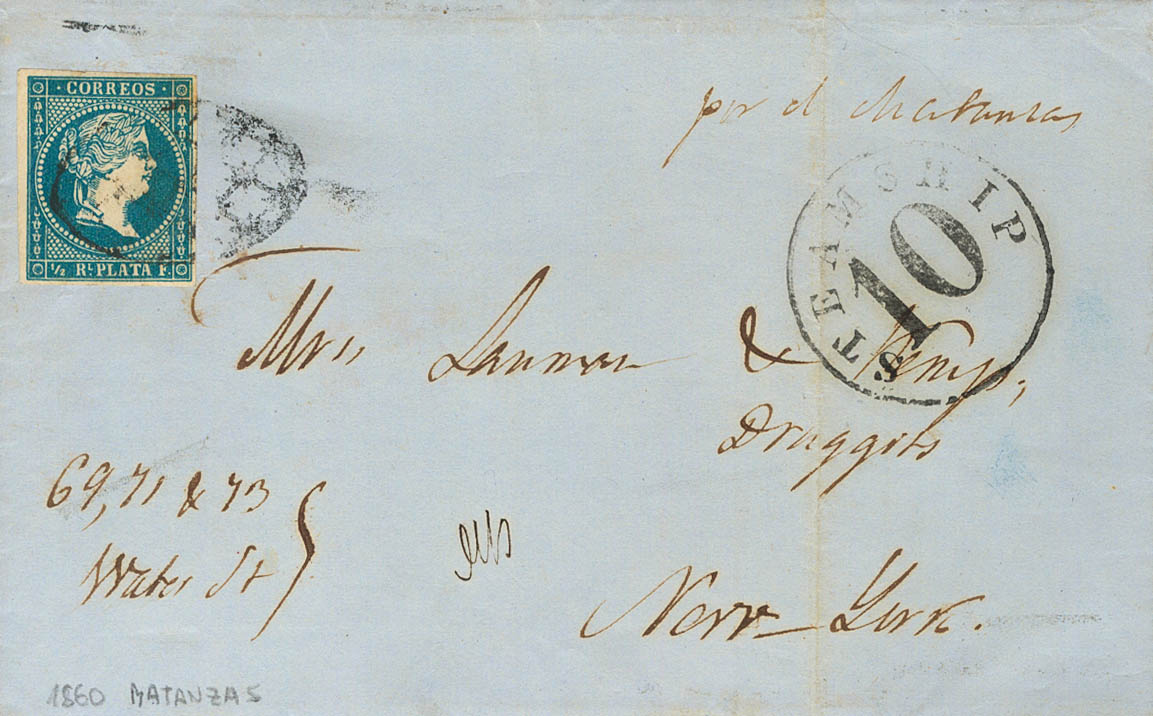 · CORREOS ·
½ Rˡ PLATA F.
por el Matanzas
STEAMSHIP
10
Mrss Lanman & Kemp,
Druggits
69, 71 & 73
Water St
New-York.
1860 MATANZAS